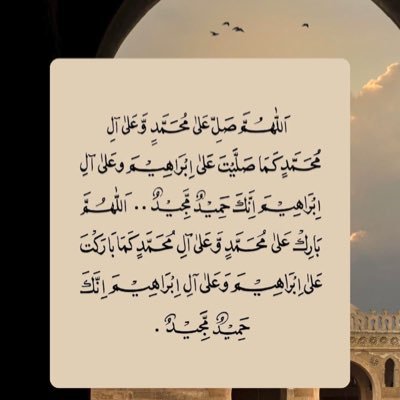 اَللّٰهُمَّ صَلِّ عَلٰى مُحَمَّدٍ وَّعَلٰى اٰلِ
مُحَمَّدٍ كَمَا صَلَّيْتَ عَلٰى اِبْرَاهِيْمَ وَعَلٰى اٰلِ
اِبْرَاهِيْمَ اِنَّكَ حَمِيْدٌ مَّجِيْدٌ .. اَللّٰهُمَّ
بَارِكْ عَلٰى مُحَمَّدٍ وَّعَلٰى اٰلِ مُحَمَّدٍ كَمَا بَارَكْتَ
عَلٰى اِبْرَاهِيْمَ وَعَلٰى اٰلِ اِبْرَاهِيْمَ اِنَّكَ
حَمِيْدٌ مَّجِيْدٌ .